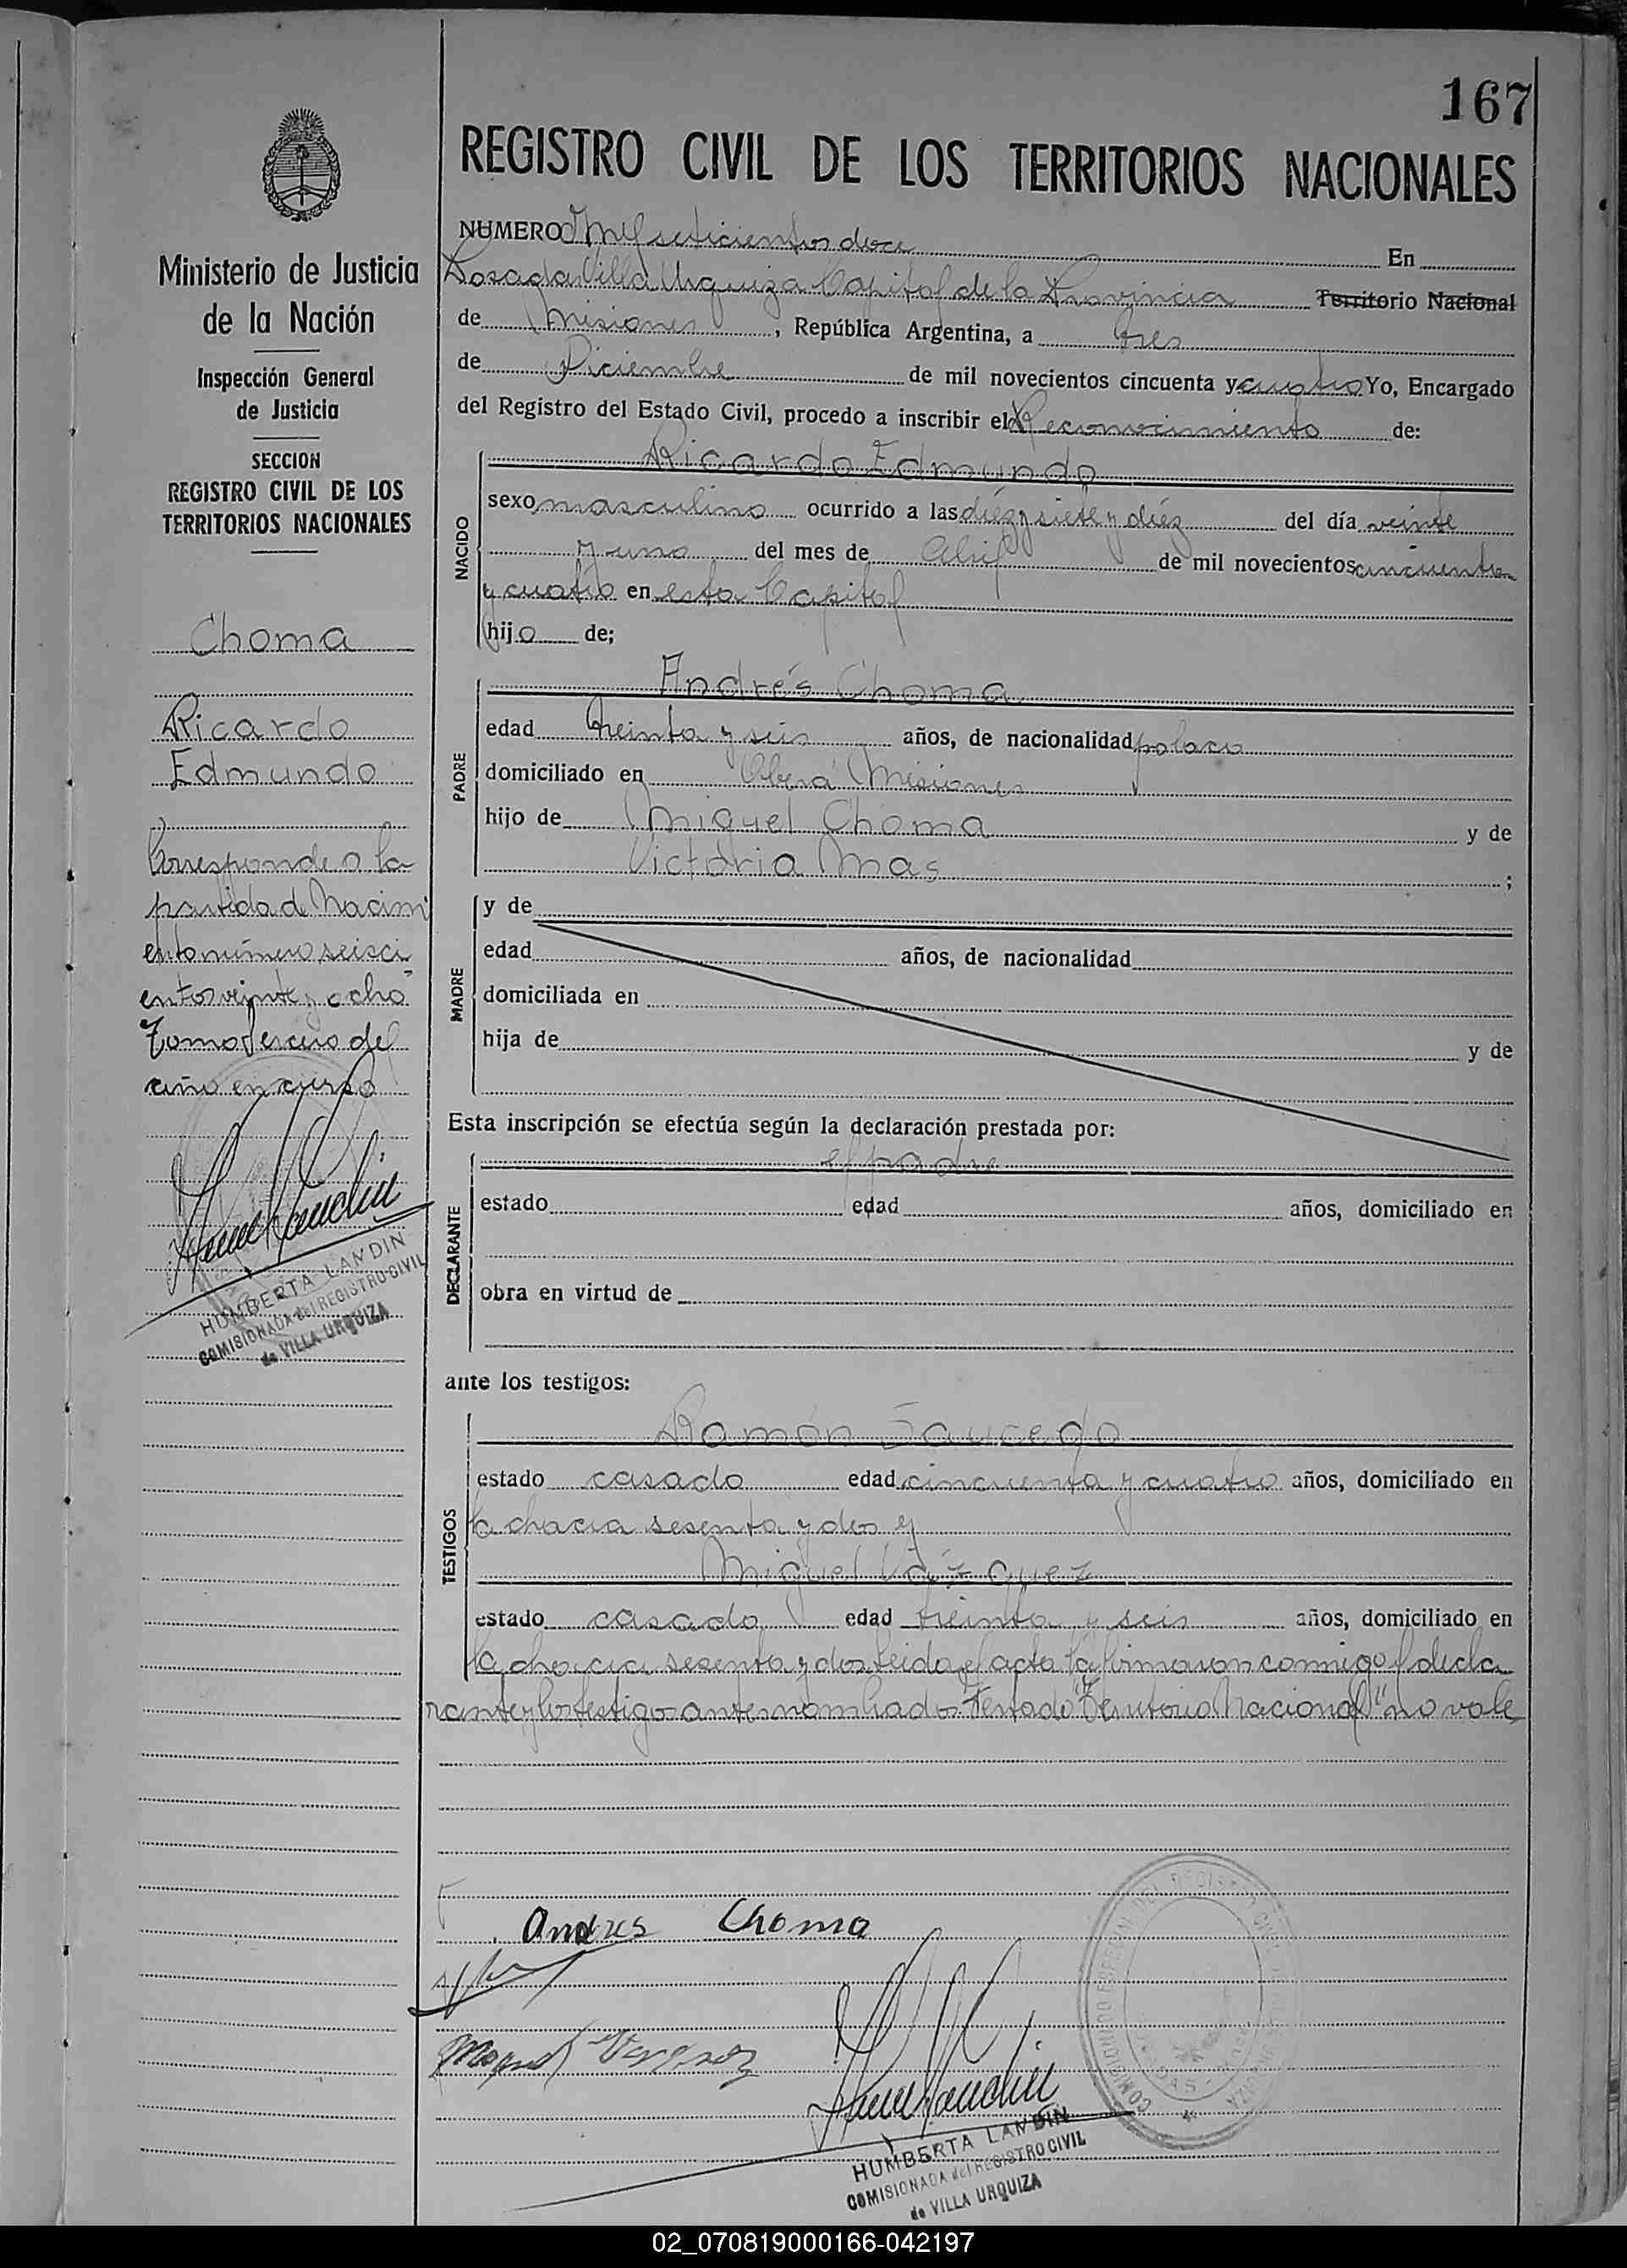 167
REGISTRO CIVIL DE LOS TERRITORIOS NACIONALES
Ministerio de Justicia
de la Nación
Inspección General
de Justicia
SECCION
REGISTRO CIVIL DE LOS
TERRITORIOS NACIONALES
Choma
Ricardo
Edmundo
Corresponde a la
partida de Nacimi
ento número seisci
entos veinte y ocho
Tomo Tercero del
año en curso
HUMBERTA LANDIN
COMISIONADA del REGISTRO CIVIL
de VILLA URQUIZA
NUMERO Mil seticientos doce En
Posadas Villa Urquiza Capital de la Provincia Territorio Nacional
de Misiones, República Argentina, a tres
de Diciembre de mil novecientos cincuenta y cuatro Yo, Encargado
del Registro del Estado Civil, procedo a inscribir el Reconocimiento de:
NACIDO
Ricardo Edmundo
sexo masculino ocurrido a las diez y siete y diez del día veinte
y uno del mes de Abril de mil novecientos cincuenta
y cuatro en esta Capital
hijo de;
PADRE
Andrés Choma
edad treinta y seis años, de nacionalidad polaco
domiciliado en Oberá Misiones
hijo de Miguel Choma y de
Victoria Mas ;
MADRE
y de
edad años, de nacionalidad
domiciliada en
hija de y de
Esta inscripción se efectúa según la declaración prestada por:
DECLARANTE
el padre
estado edad años, domiciliado en
obra en virtud de
ante los testigos:
TESTIGOS
Ramón Saucedo
estado casado edad cincuenta y cuatro años, domiciliado en
la chacra sesenta y dos y
Miguel Vázquez
estado casado edad treinta y seis años, domiciliado en
la chacra sesenta y dos Leida el acta la firmaron conmigo el decla
rante y los testigos antes nombrados. Testado "Territorio Nacional" no vale
Andres Choma
HUMBERTA LANDIN
COMISIONADA del REGISTRO CIVIL
de VILLA URQUIZA
02_070819000166-042197